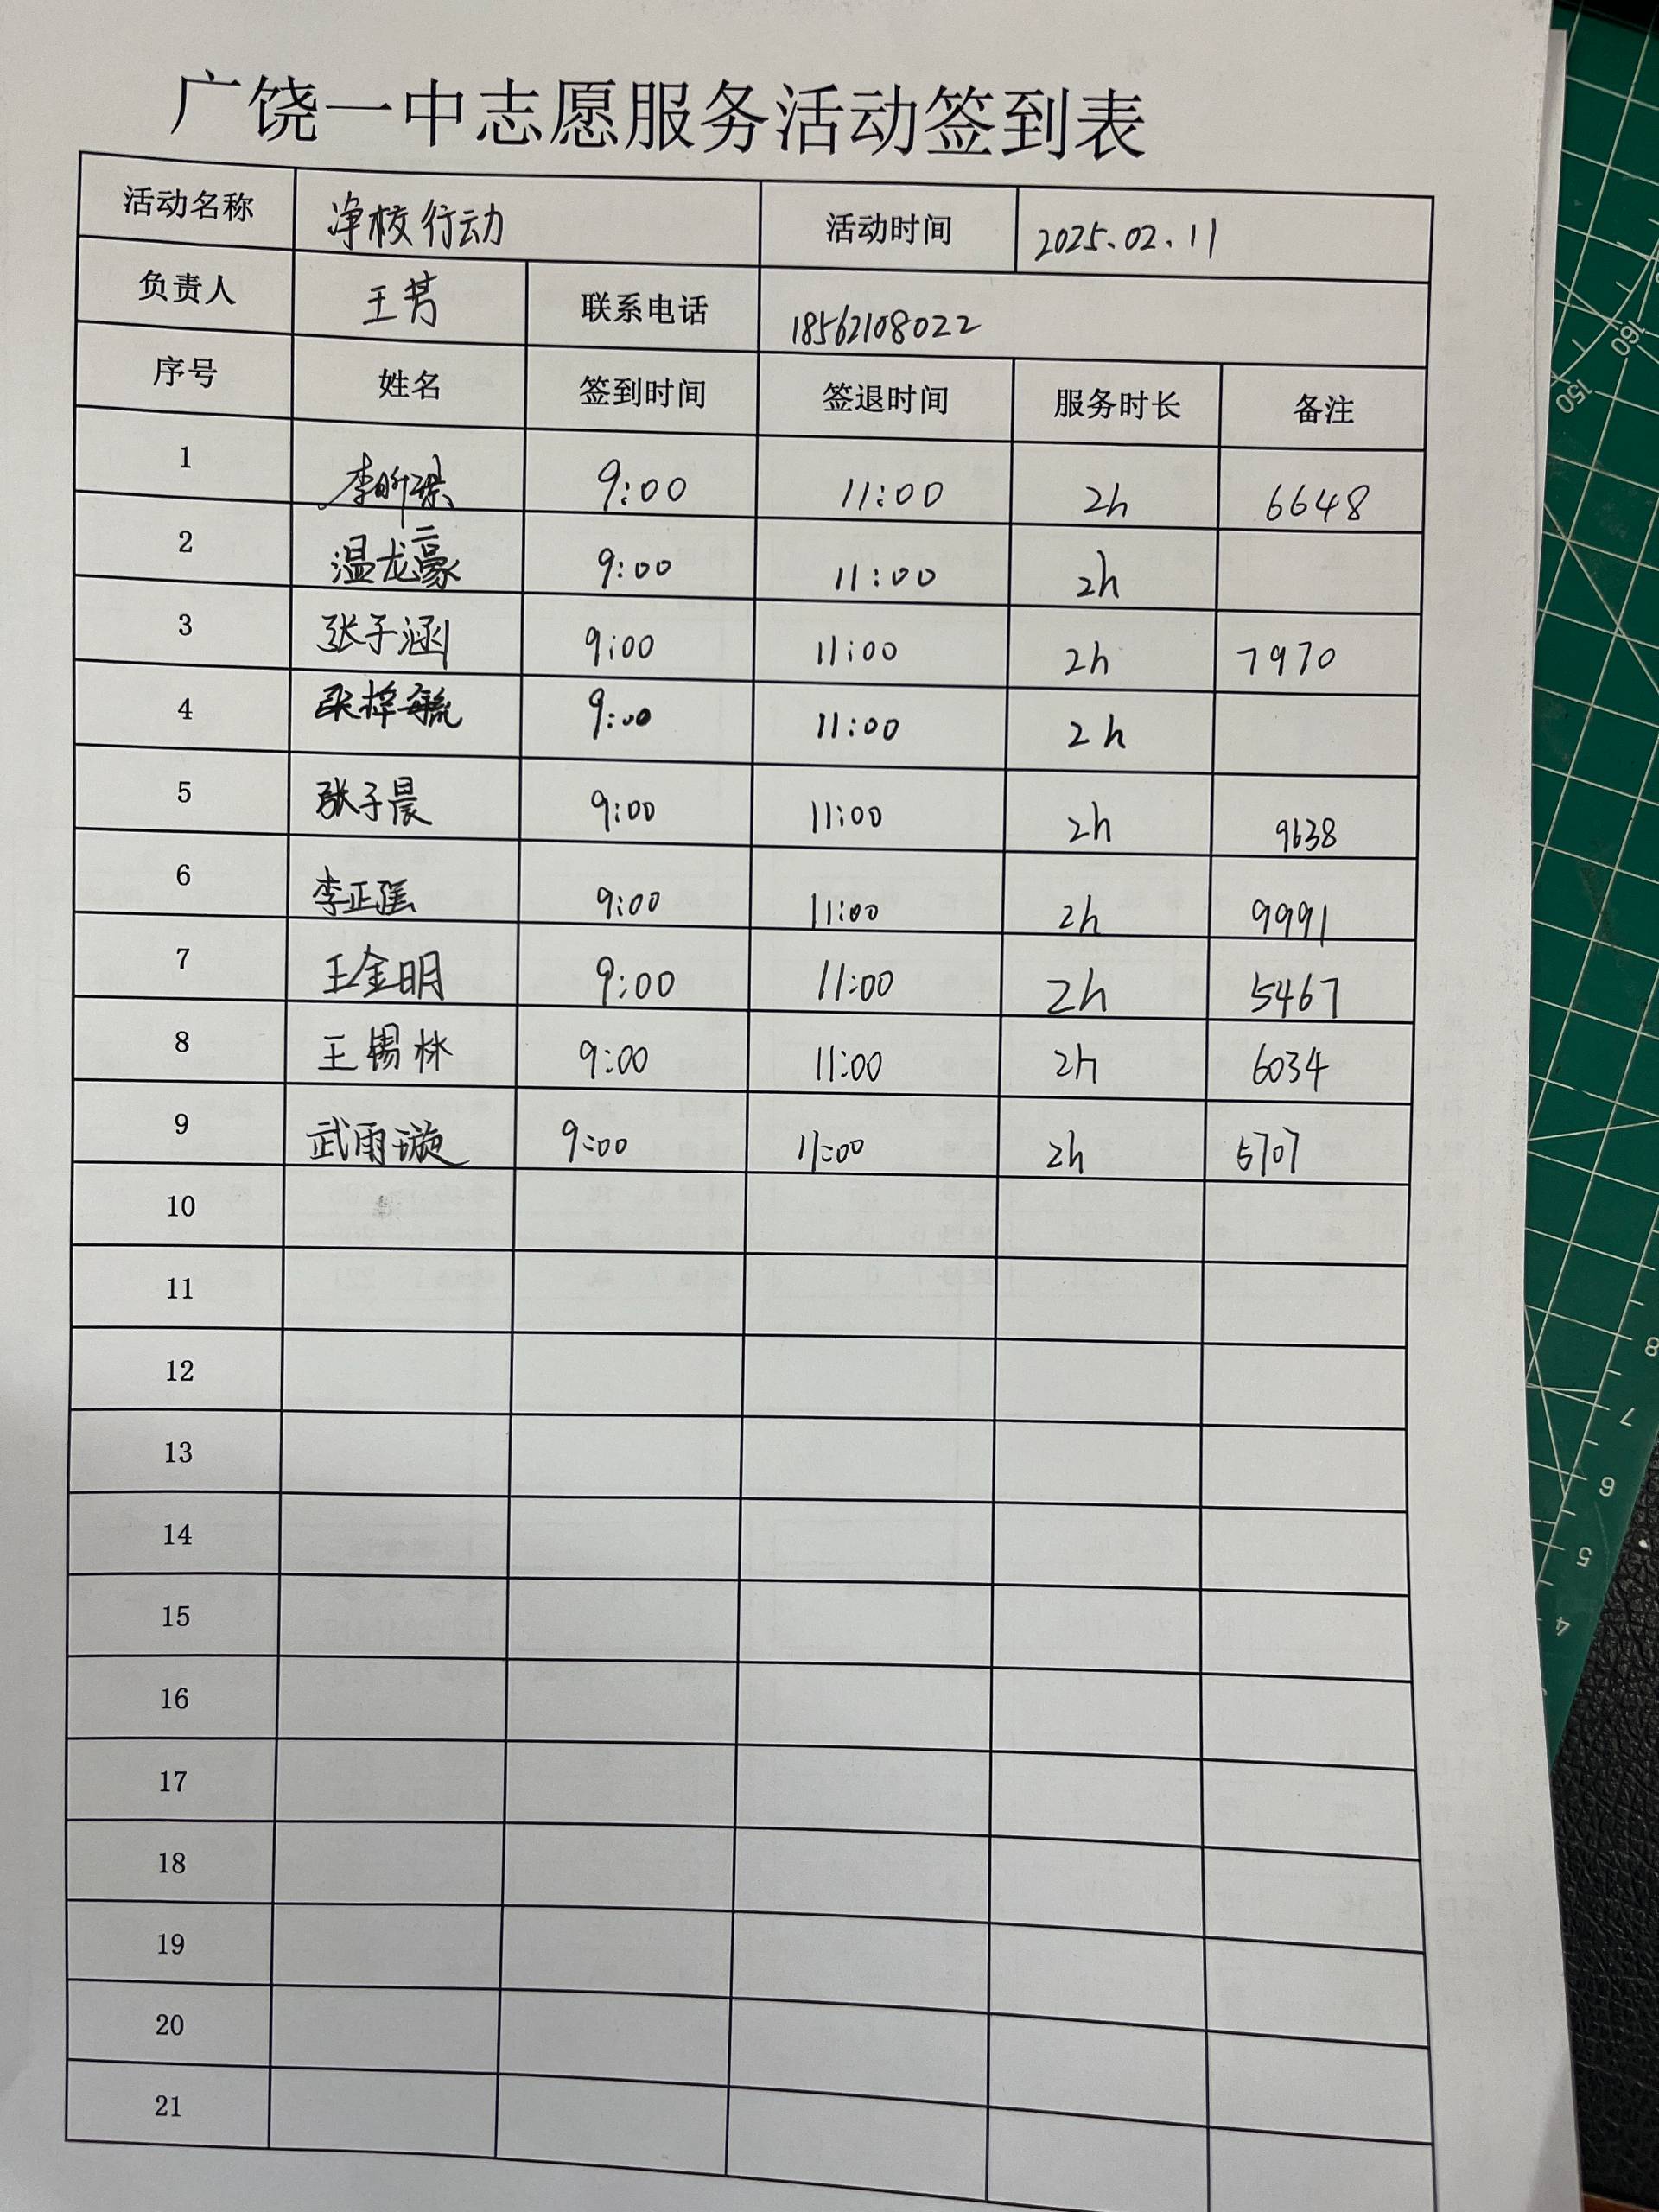 广饶一中志愿服务活动签到表
活动名称 净校行动 活动时间 2025.02.11
负责人 王芳 联系电话 18562108022
序号 姓名 签到时间 签退时间 服务时长 备注
1 李昕璟 9:00 11:00 2h 6648
2 温龙豪 9:00 11:00 2h
3 张子涵 9:00 11:00 2h 7970
4 张梓毓 9:00 11:00 2h
5 张子晨 9:00 11:00 2h 9638
6 李正瑶 9:00 11:00 2h 9991
7 王金明 9:00 11:00 2h 5467
8 王锡林 9:00 11:00 2h 6034
9 武雨漩 9:00 11:00 2h 5707
10
11
12
13
14
15
16
17
18
19
20
21
160
150
8
7
6
5
4